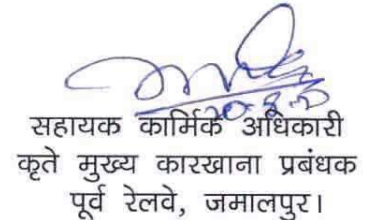 सहायक कार्मिक अधिकारी
कृते मुख्य कारखाना प्रबंधक
पूर्व रेलवे, जमालपुर।